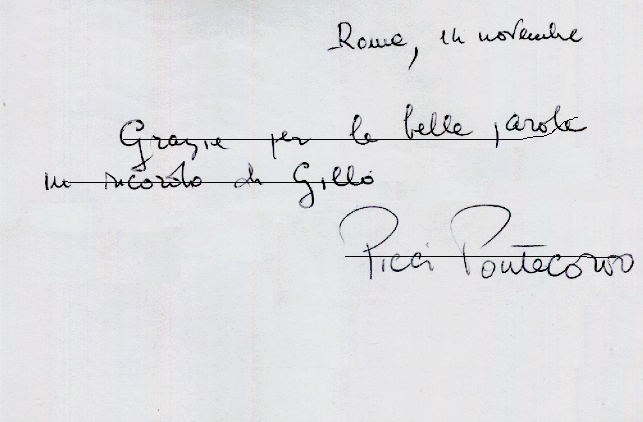 Roma, 14 novembre
Grazie per le belle parole
in ricordo di Gillo
Picci Pontecorvo